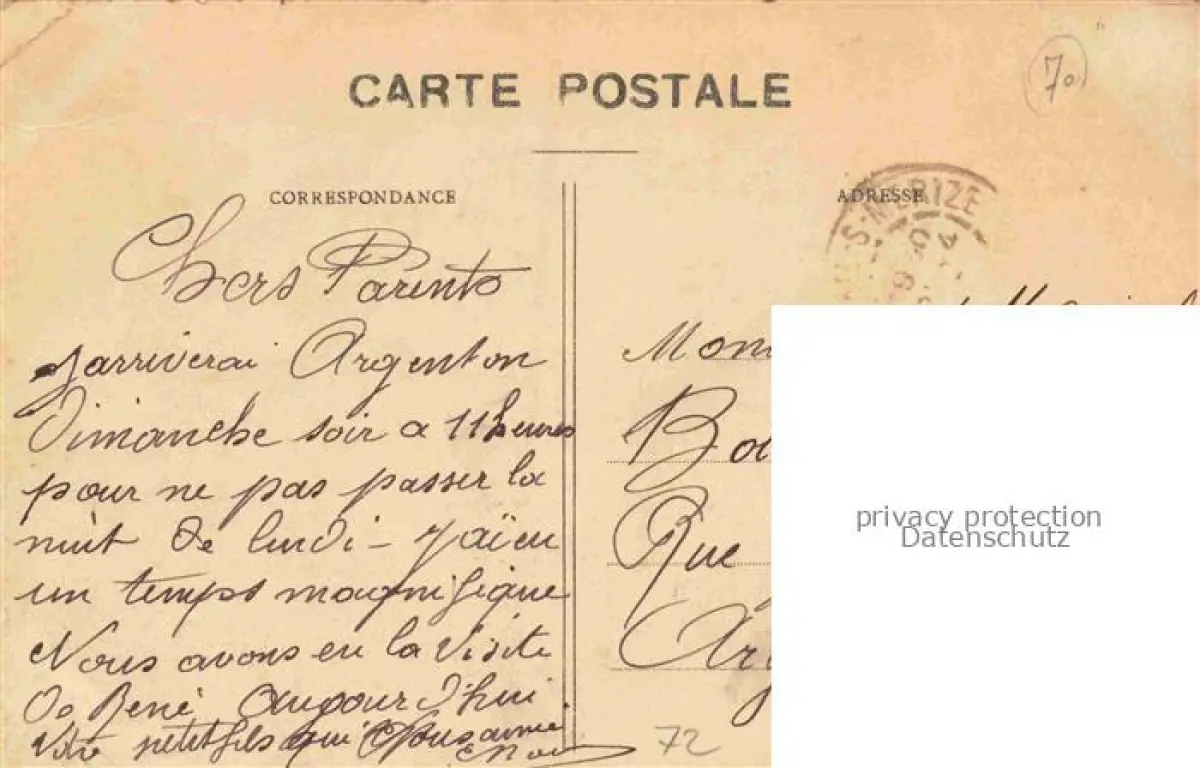 CARTE POSTALE
70
CORRESPONDANCE
ADRESSE
Chers Parents
Jarriverai Argenton
Dimanche soir a 11 heures
pour ne pas passer la
nuit de lundi - J'aïeu
un temps magnifique
Nous avons eu la visite
De René aujourd'hui
Votre petit fils qui Vous aime
Mon
Ba
Rue
Ar
72
privacy protection
Datenschutz